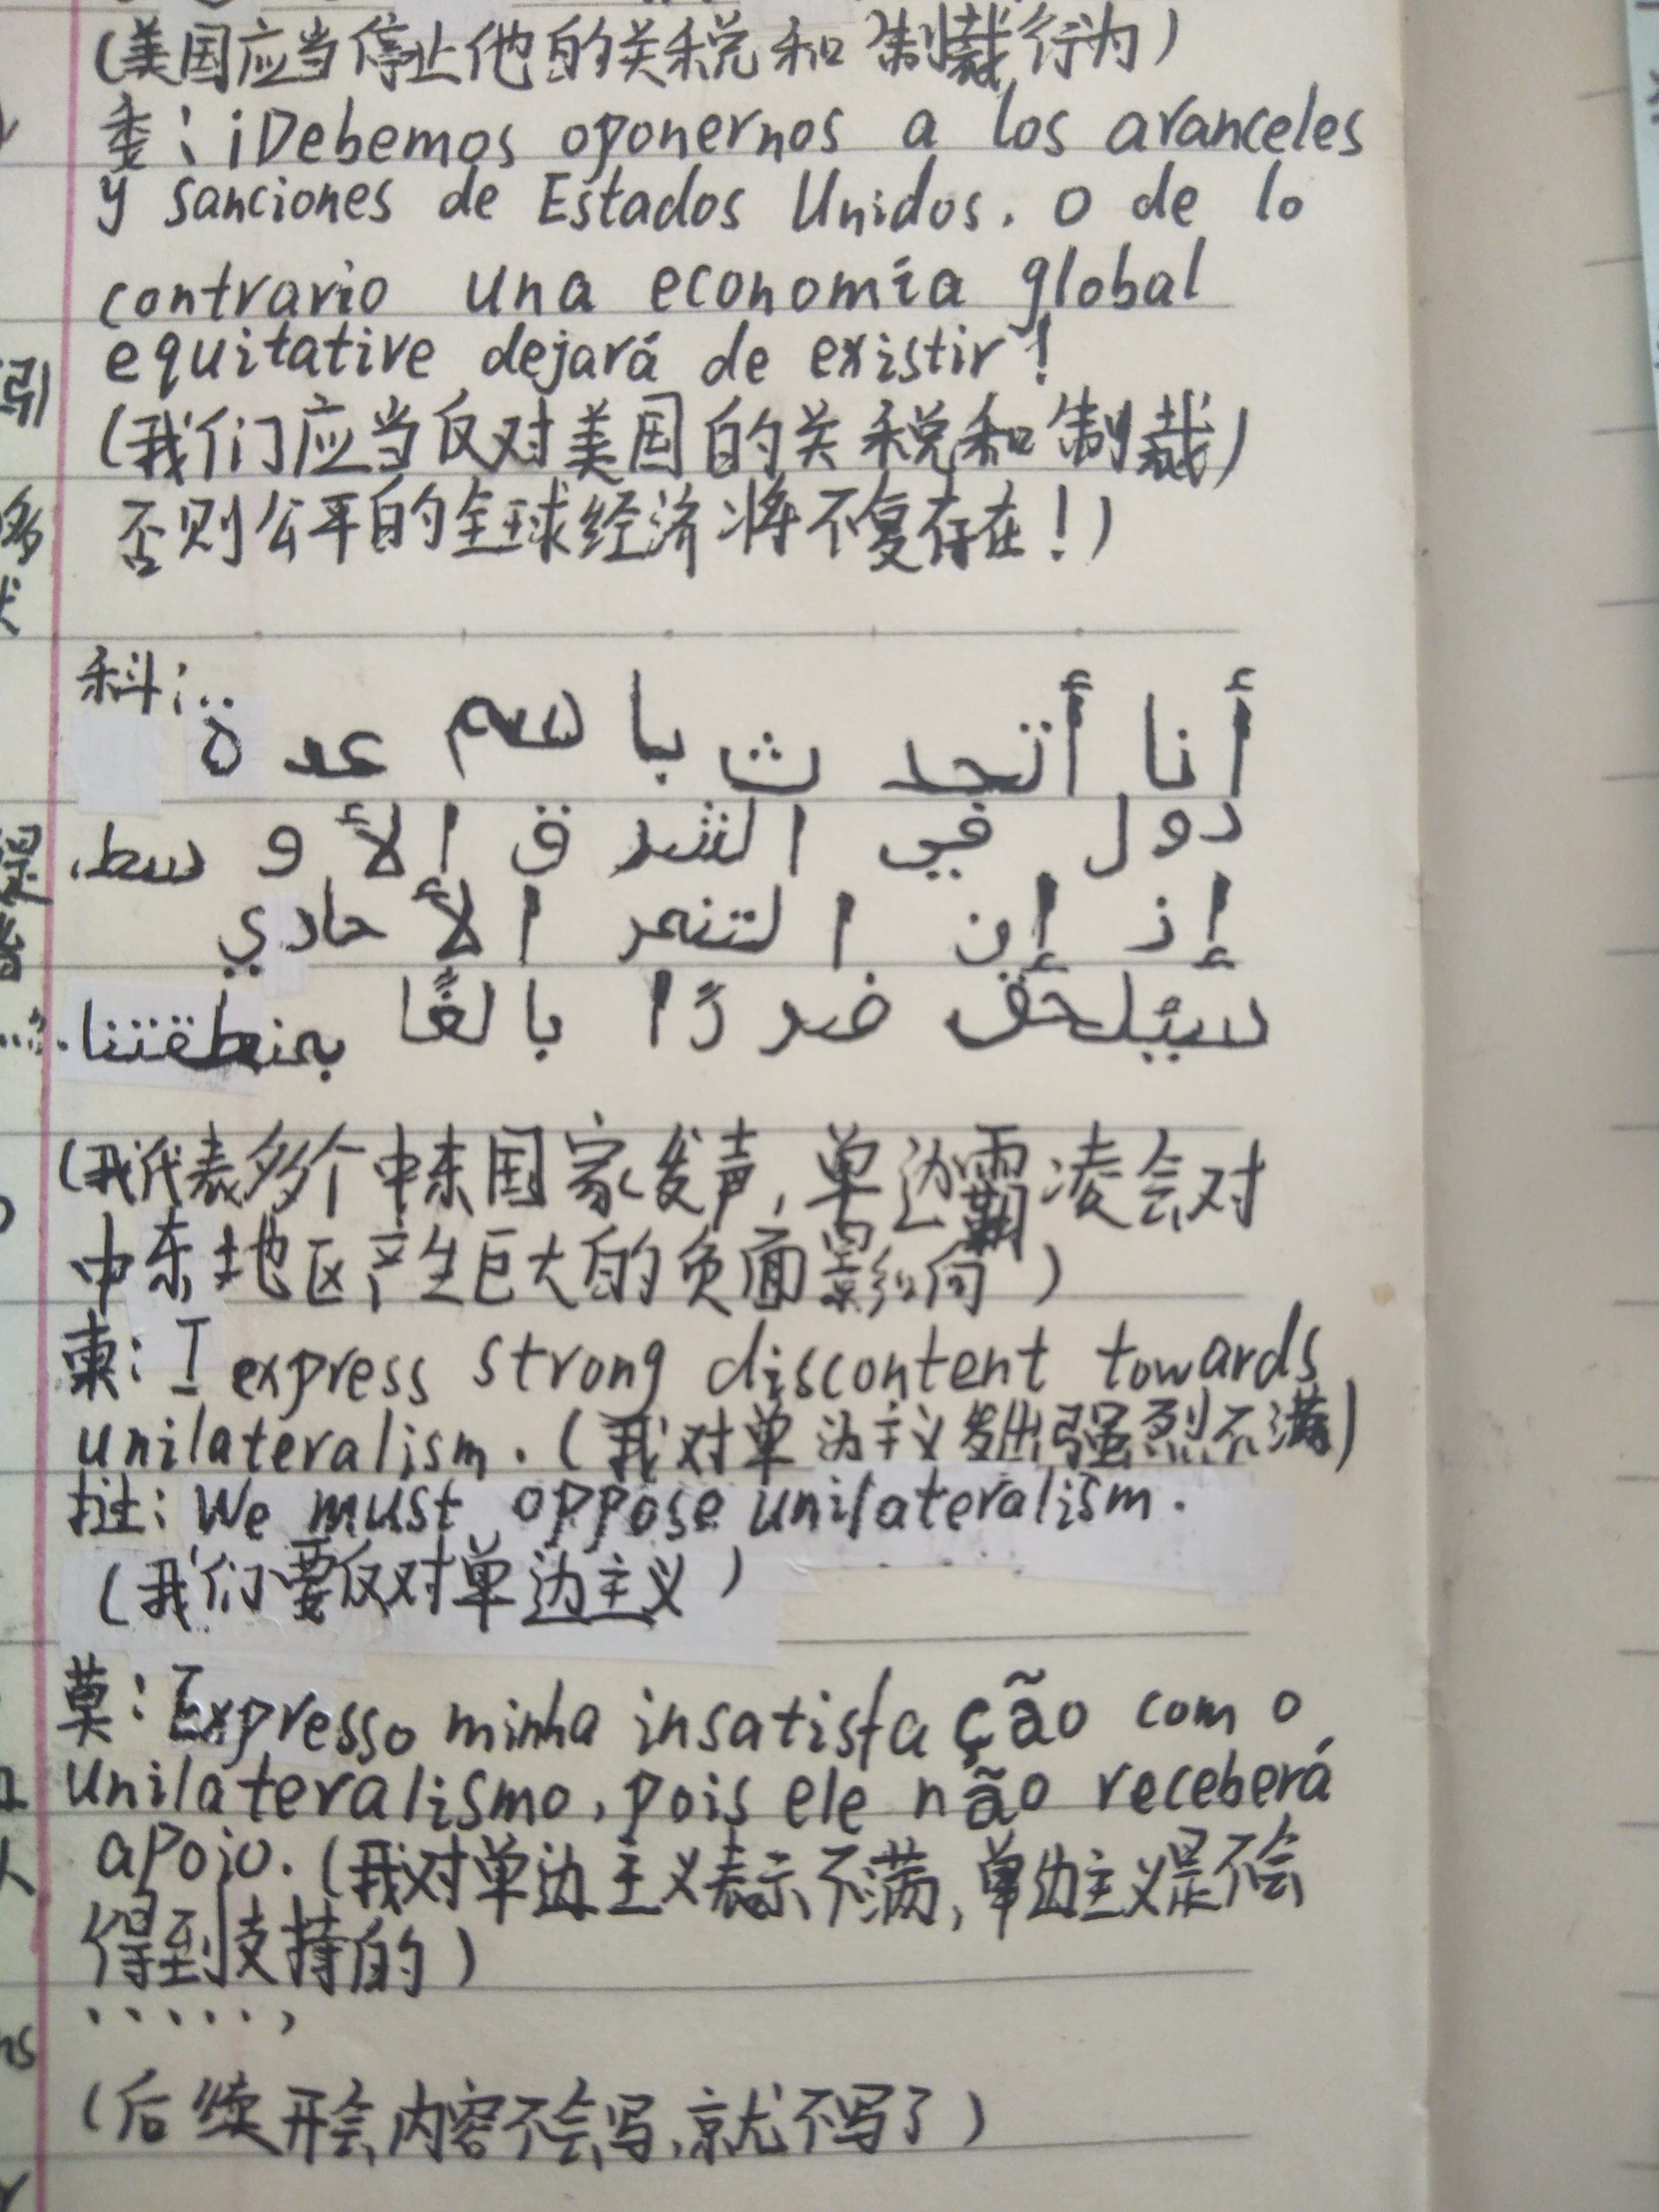 (美国应当停止他的关税和制裁行为)
委:¡Debemos oponernos a los aranceles
y sanciones de Estados Unidos. O de lo
contrario una economía global
equitative dejará de existir!
(我们应当反对美国的关税和制裁)
否则公平的全球经济将不复存在!)
科:
أنا أتحدث باسم عدة
دول في الشرق الأوسط.
إذ إن التنمر الأحادي
سيلحق ضررًا بالغًا بمنطقتنا.
(我代表多个中东国家发声,单边霸凌会对
中东地区产生巨大的负面影响)
柬:I express strong discontent towards
unilateralism.(我对单边主义发出强烈不满)
We must oppose unilateralism.
(我们要反对单边主义)
莫:Expresso minha insatisfação com o
unilateralismo, pois ele não receberá
apoio.(我对单边主义表示不满,单边主义是不会
得到支持的)
......,
(后续开会内容不会写,就不写了)